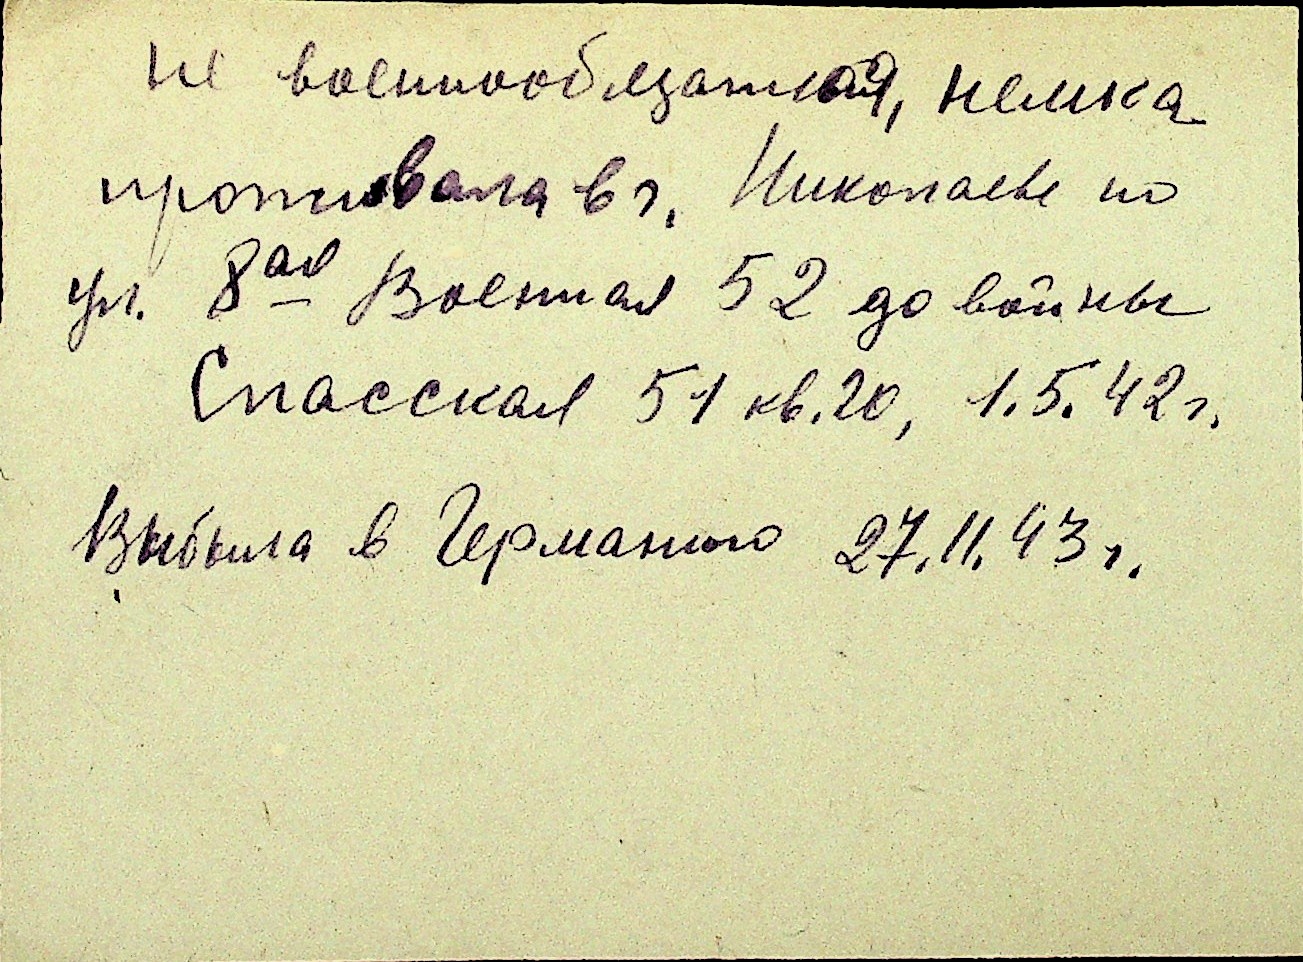 не военнообязанная, немка
проживала в г. Николаеве по
ул. 8ая Военная 52 до войны
Спасская 51 кв. 20, 1.5.42 г.
Выбыла в Германию 27.11.43 г.